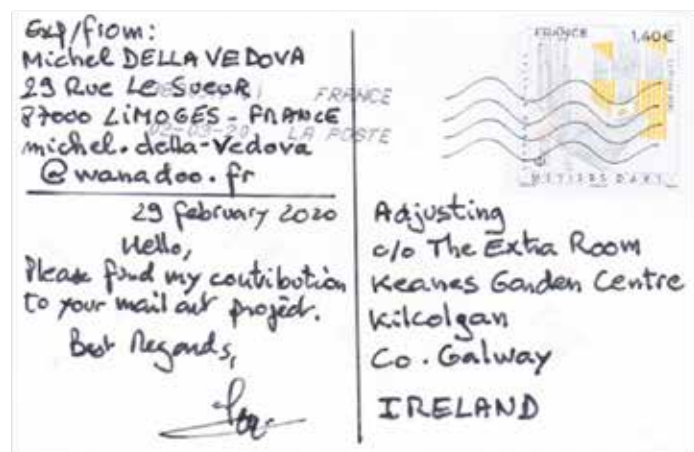 Exp/from:
Michel DELLA VEDOVA
29 Rue Le Sueur
87000 LIMOGES - FRANCE
michel.della-vedova
@wanadoo.fr
29 february 2020
Hello,
Please find my contribution
to your mail art project.
Best Regards,
FRANCE
02-03-20 LA POSTE
FRANCE 1,40€
MÉTIERS D'ART
Adjusting
c/o The Extra Room
Keanes Garden Centre
Kilcolgan
Co. Galway
IRELAND